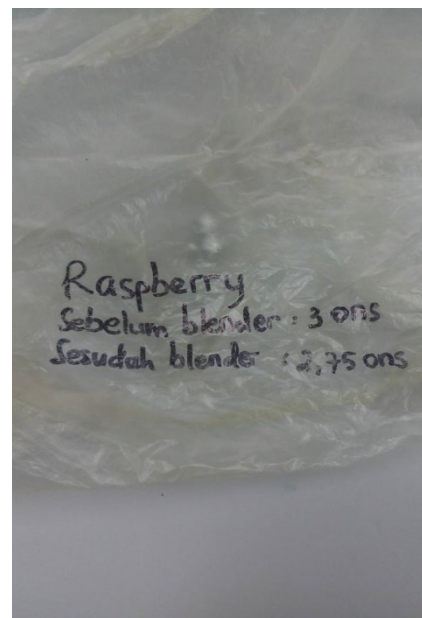 Raspberry
Sebelum blender : 3 ons
Sesudah blender : 2,75 ons